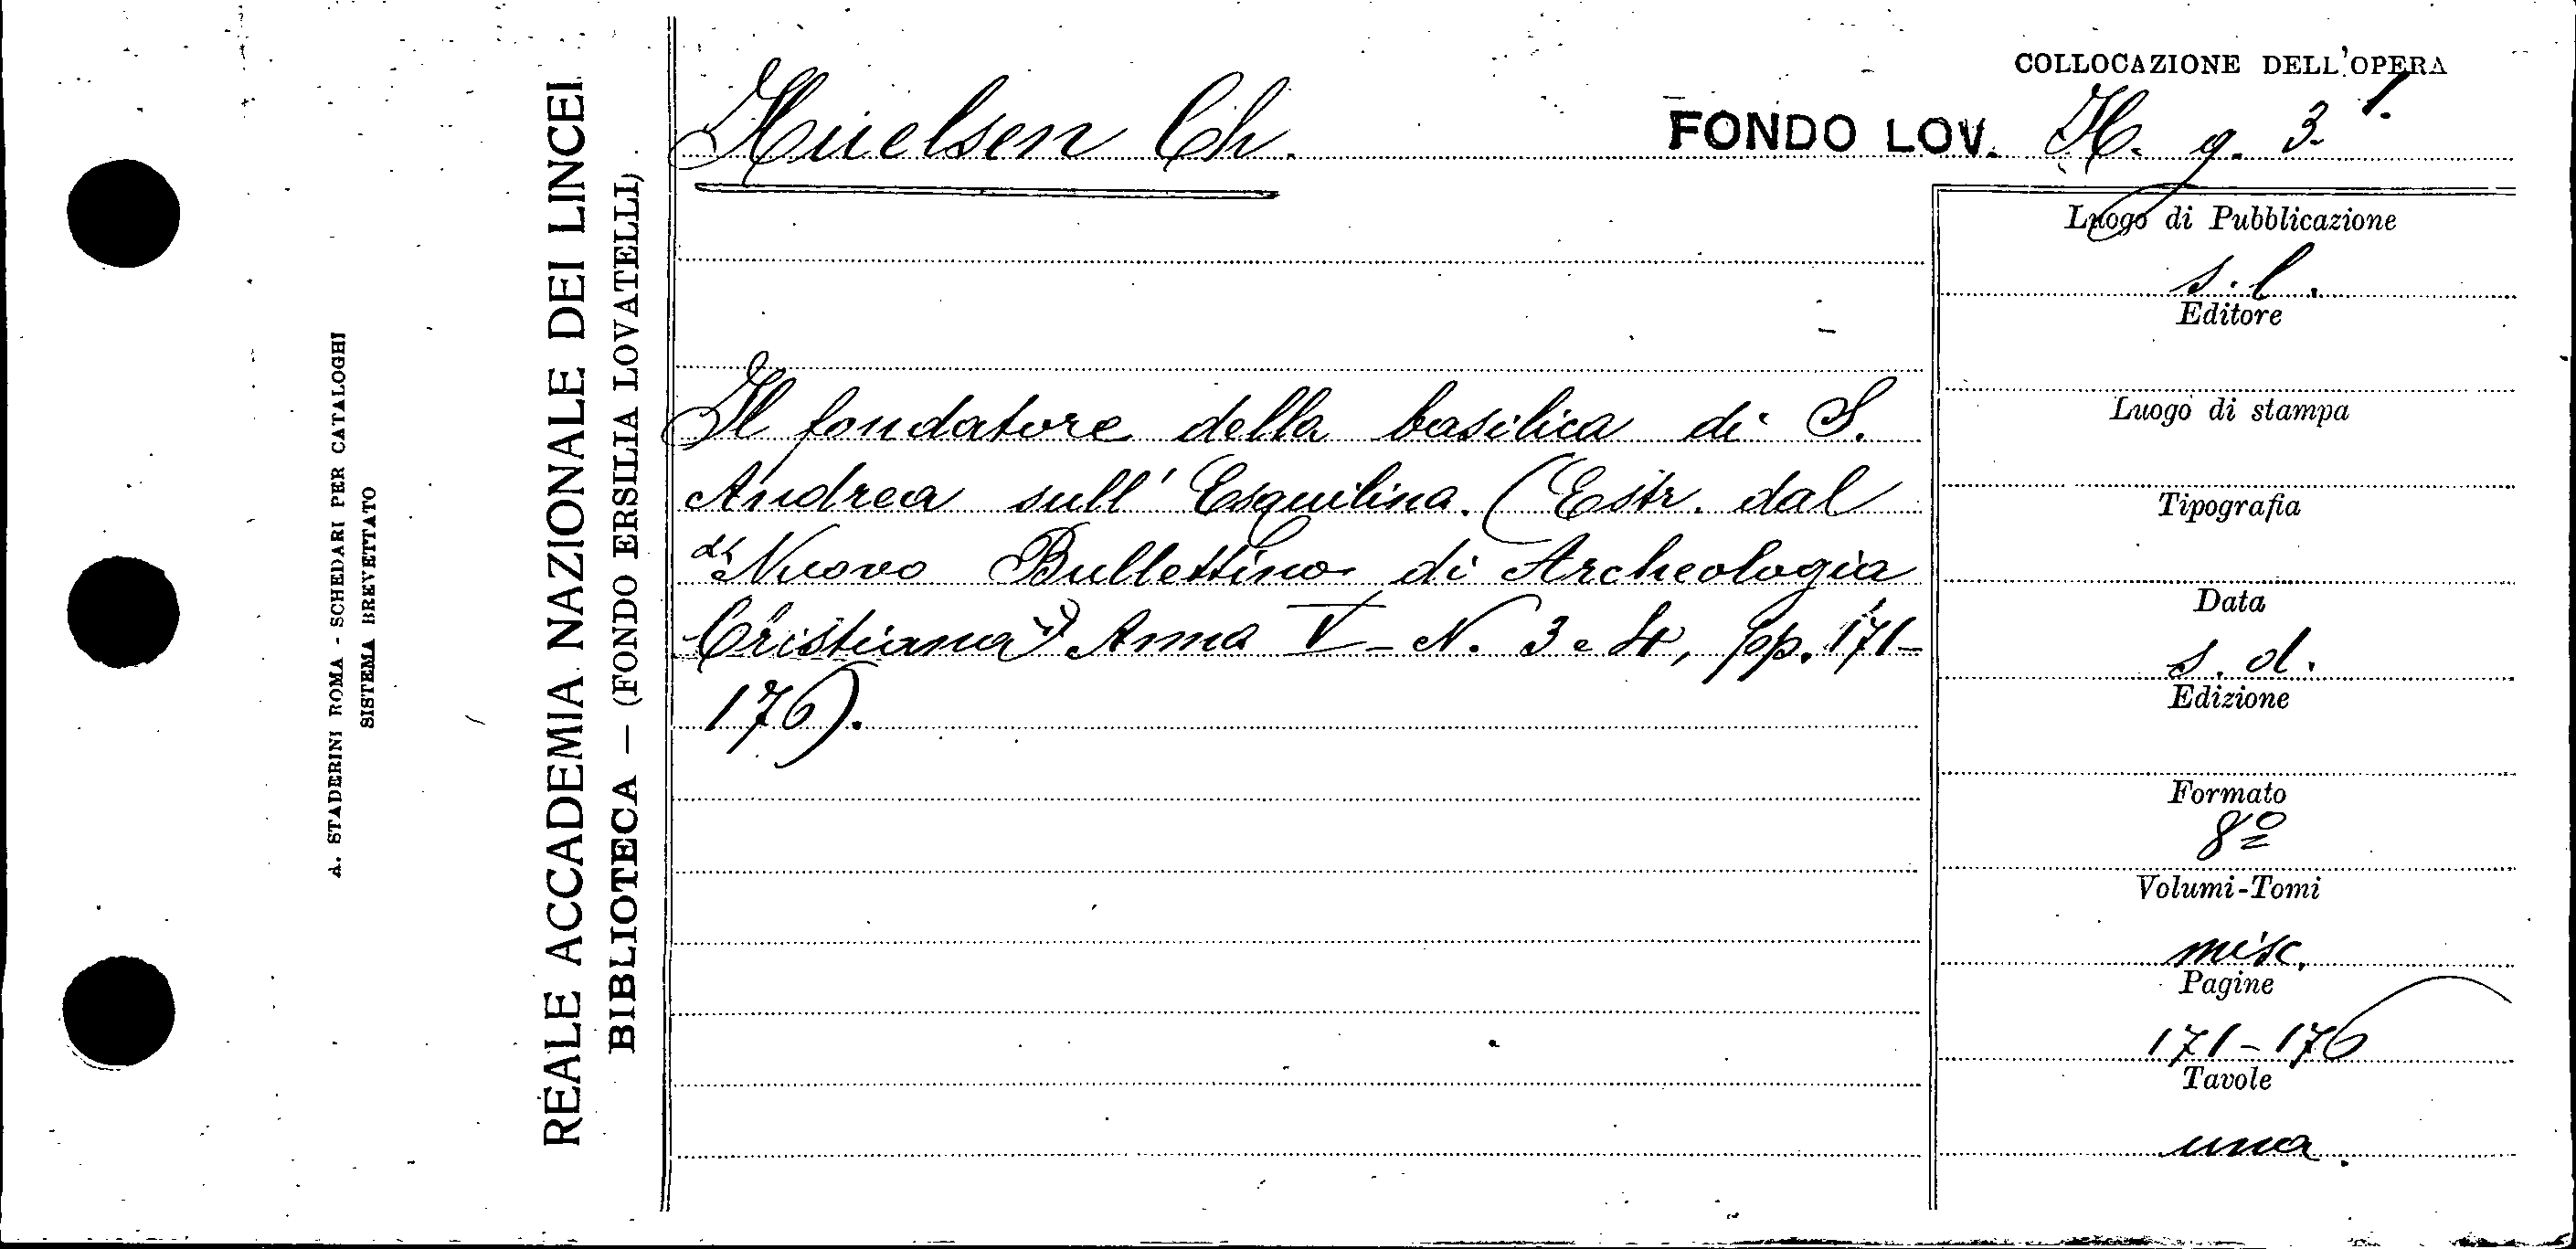 A. STADERINI ROMA - SCHEDARI PER CATALOGHI
SISTEMA BREVETTATO
REALE ACCADEMIA NAZIONALE DEI LINCEI
BIBLIOTECA — (FONDO ERSILIA LOVATELLI)
COLLOCAZIONE DELL'OPERA
Huelsen Ch.
FONDO LOV. H. g. 3. 1.
Il fondatore della basilica di S.
Andrea sull' Esquilina. (Estr. dal
"Nuovo Bullettino di Archeologia
Cristiana" Anno V - N. 3 e 4, pp. 171-
176).
Luogo di Pubblicazione
s. l.
Editore
Luogo di stampa
Tipografia
Data
s. d.
Edizione
Formato
8º
Volumi-Tomi
misc.
Pagine
171-176
Tavole
una.